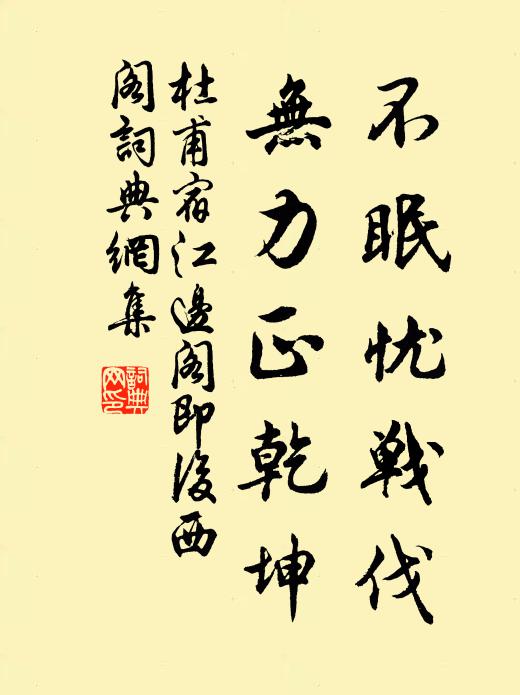 不眠忧戦伐
無力正乾坤
杜甫宿江邊阁即後西
阁詞典網集
詞典
网印